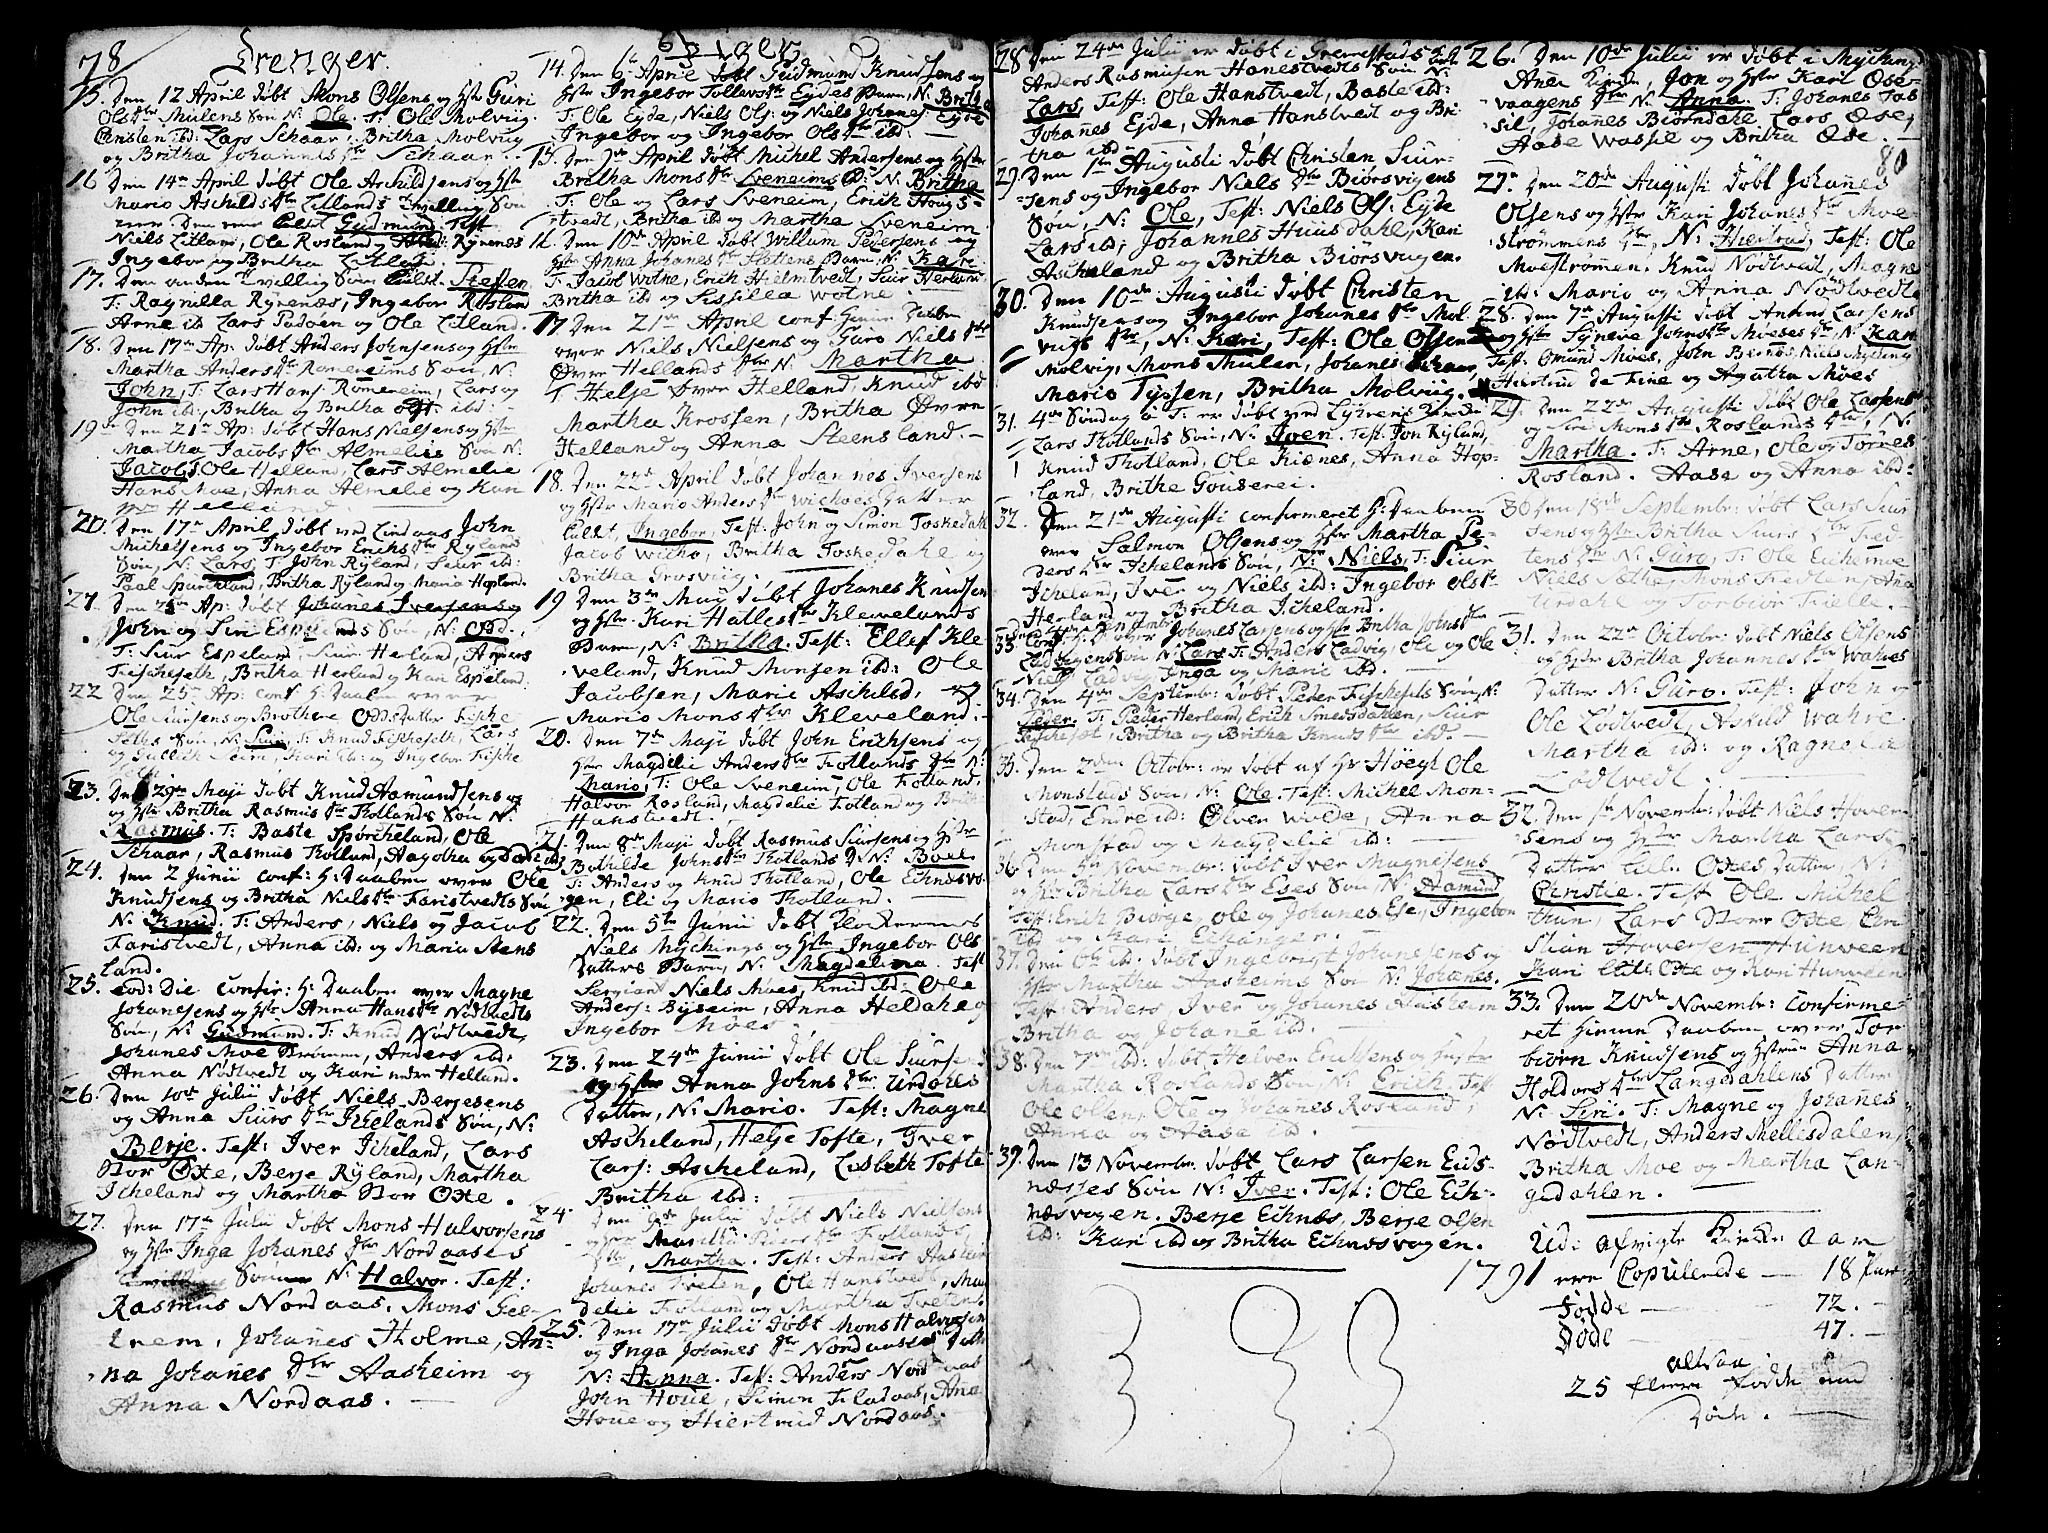 78
Drenger.
15. Den 12 April døbt Mons Olsens og Hstr Guri
Olsdtr Mulens Søn N: Ole. T: Ole Molviig.
Christen ibd: Lars Schaar, Britha Molviig
og Britha Johannesdtr Schaar.
16 Den 14de April døbt Ole Aschildsens og Hstr
Mario Aschildsdtr Litlands Tvilling Søn
ner. Den ene kaldt Gudmund Test
Niels Litland, Ole Rosland og Rynenes
Ingebor og Britha Litland.
17. Den anden Tvilling Søn kaldt. Steffen
T: Ragnilla Rynenæs, Ingebor Rosland
Arne ibd Lars Padøen og Ole Litland.
18. Den 17de Ap: døbt Anders Johnsens og Hstr
Martha Andersdtr Romereims Søn, N:
John, T: Lars Hans: Romereim, Lars og
John ibd:, Britha og Britha ibd:
19. Den 21de Ap: døbt Hans Nielsens og Hstr
Martha Jacobsdtr Almelies Søn N:
Jacob. T. Ole Helland, Lars Almelie
Hans Moe, Anna Almelie og Kari
Helland.
20. Den 17de April døbt ved Lindaas John
Michelsens og Ingebor Erichsdtr Rylands
Søn, N: Lars. T: John Ryland, Siur ibd:
Paal Spurcheland, Britha Ryland og Maria Hopland.
21. Den Ap: døbt Johanes Iversens og
John og Siri Espelands Søn, N: Odd.
T: Siur Espeland, Siur Herland, Anders
Fischeseth, Britha Herland og Kari Espeland.
22 Den 25de Ap: conf H: Daaben over
Ole Siursens og Brothere Oddsdatter Fische
seths Søn, N: Siur, T: Knud Fischeseth, Lars
og Gullich Seim, Kari ibd: og Ingebor Fische
23. Den 29de Maji døbt Knud Aamundsens og
og Hstr Britha Rasmusdtr Totlands Søn N:
Rasmus. T: Baste Spörcheland, Ole
Schaar, Rasmus Totland, Aagotha og
24. Den 2 Junii conf: H: Daaben over Ole
Knudsens og Britha Nielsdtr Faristvedts Søn
N: Knud. T: Anders, Niels og Jacob
Faristvedt, Anna ibd: og Maria Stens
land.
25. Eod: Die confir: H: Daaben over Magne
Johanesens og Hstr Anna Hansdtr Nødtvedts
Søn, N: Gudmund. T: Knud Nødtvedt,
Johanes Moe Strømen, Anders ibd:
Anna Nødtvedt og Kari nedre Helland.
26. Den 10de Julii døbt Niels Berjesens
og Anna Siursdtr Ichelands Søn, N:
Berje. Test: Iver Icheland, Lars
Stor Oxte, Berje Ryland, Martha
Icheland og Martha Stor Oxte.
27. Den 17de Julii døbt Mons Halvorsens
og Hstr Inga Johanesdtr Nordaases
Søn N: Halvor. Test:
Rasmus Nordaas, Mons See-
trem, Johanes Holme, An-
na Johanesdtr Aasheim og
Anna Nordaas.
Piger
14. Den 6te April døbt Gudmund Knudsens og
Hstr Ingebor Tollevsdtr Eydes Barn, N: Britha
T: Ole Eyde, Niels Ols: og Niels Johanes: Eyde
Ingebor og Ingebor Olsdtr ibd:
15. Den April døbt Michel Andersens og Hstr
Britha Monsdtr Sveneims D: N: Britha
T: Ole og Lars Sveneim, Erich Houg-
stvedt, Britha ibd og Martha Sveneim
16. Den 10de April døbt Willum Pedersens og
Hstr Anna Johanesdtr Slettens Barn, N: Kari
T: Jacob Wotne, Erich Hielmtvedt, Siur Herland
Britha ibd og Sissilla Wotne
17 Den 21de April conf Hiemme Daaben
over Niels Nielsens og Guro Nielsdtr
Øvre Hellands dtr N: Martha.
T Helje Øvre Helland, Knud ibd
Martha Krossen, Britha Øvre
Helland og Anna Steensland.
18. Den 22de April døbt Johannes Iversens
og Hstr Mario Andersdtr Wichoes Datter
kaldt, Ingebor. Test: John og Simon Toskedahl
Jacob Wicho, Britha Toskedahl og
Britha Grosviig.
19 Den 3de Maji døbt Johanes Knudsen
og Hstr Kari Hallesdtr Klevelands
Barn, N: Britha. Test: Ellef Kle-
veland, Knud Monsen ibd: Ole
Jacobsen, Marie Aschilsd. og
Mario Monsdtr Kleveland.
20. Den 7de Maji døbt John Erichsens og
Hstr Magdelie Andersdtr Totlands dtr N:
Mario, T: Ole Sveneim, Ole Totland,
Halvor Rosland, Magdelie Totland og Britha
Hanstvedt.
21. Den 8de Maji døbt Rasmus Siursens og Hstr
Bothilde Johnsdtr Totlands D. N: Boel
T: Anders og Knud Totland, Ole Echnesvo-
gen, Eli og Mario Totland.
22. Den 5te Junii døbt Klockerens
Niels Mychings og Hstr Ingebor Ols
Datters Barn, N: Magdelena. Test
Sergiant Niels Moes, Knud ibd: Ole
Anders: Byseim, Anna Heldahl og
Ingebor Moes.
23. Den 24de Junii døbt Ole Siursens
og Hstr Anna Johnsdtr Urdahls
Datter, N: Mario. Test: Magne
Ascheland, Helje Tofte, Iver
Lars: Ascheland, Lisbeth Tofte
Britha ibd:
24. Den Julii døbt Niels Nielsens
og Totlands
Martha. Test: Anders
Johanes Tveten, Ole Hanstvedt, Mag
delie Totland og Martha Tveten.
25. Den 17de Julii døbt Mons Halvorsens
og Inga Johanesdtr Nordaases Datter
N: Anna. Test: Anders Nordaas
John Houe, Simon Tiladaas, Ana
Houe og Hiertrud Nordaas.
28 Den 24de Julii er døbt i Gremstads
Anders Rasmusen Hanestvedts Søn N:
Lars. Test: Ole Hanstvedt, Baste ibd:
Johannes Eyde, Anna Hanstvedt og Bri
tha ibd
29. Den 1ste Augusti døbt Christen Siur-
sens og Ingebor Nielsdtr Biørsvigens
Søn, N: Ole, Test: Niels Ols: Eyde
Lars ibd; Johannes Huusdahl, Kari
Ascheland og Britha Biørsvigen.
30. Den 10de Augusti døbt Christen
Knudsens og Ingebor Johanesdtr Mol.
vigs dtr, N: Kari, Test: Ole Olsen
Molvig, Mons Mulen, Johanes Schaar,
Mario Tyssen, Britha Molviig.
31. 4de Søndag e T. er døbt ved Lygrens Kirche
Lars Totlands Søn, N: Iven. Test. Jon Ryland,
Knud Totland, Ole Kienes, Anna Hop-
land, Brithe Gouserei.
32. Den 21de Augusti confirmeret H: Daaben
over Salmon Olsens og Hstr Martha Pe-
dersdtr Ichelands Søn, N: Niels, T: Siur
Icheland, Iver og Niels ibd: Ingebor Olsdtr
Herland og Britha Icheland.
33. Conf: H: D over Johanes Larsens og Hstr Britha Johnsdtr
Ladvigens Søn N: Lars T: Anders Ladvig, Ole og Ole
Niels Ladvig, Inga og Mari ibd.
34. Den 4de Septembr: døbt Peder Fischesets Søn, N:
Peder. T: Peder Herland, Erich Smedsdahlen, Siur
Fischeset, Britha og Britha Knudsdtr ibd.
35. Den 2den Octobr: er døbt af Hr Høegh Ole
Monstads Søn, N: Ole. Test: Michel Mon-
stad, Endre ibd: Ølver Wiide, Anna
Monstad og Magdelie ibd:
36. Den Novembr: døbt Iver Magnesens
og Hstr Britha Larsdtr Eses Søn, N: Aamund
Test: Erich Biørge, Ole og Johanes Ese, Ingebor
ibd og Kari Eichanger.
37. Den 6te ibd: døbt Ingebrigt Johanesens og
Hstr Martha Aasheims Søn N: Johanes.
Test: Anders, Iver og Johanes Aasheim
Britha og Johane ibd.
38. Den ibd: døbt Halvor Erichsens og Hustr
Martha Roslands Søn N: Erich. Test
Ole Olsen, Ole og Johanes Rosland,
Anna og Aase ibd.
39. Den 13 Novembr: døbt Lars Larsen Eids-
næsses Søn N: Iver. Test: Ole Ech-
næsvogen. Berje Echnæs, Berje Olsen
ibd: Kari ibd og Britha Echnæsvogen.
80
26. Den 10de Julii er døbt i Mychings
Anex Kirche, Jon og Hstr Kari Ose-
vaagens dtr N: Anna. T: Johanes Tos
sil, Johanes Biørndahl, Lars Ose,
Aase Wassil og Britha Ose.
27. Den 20de Augusti døbt Johanes
Olsens og Hstr Kari Johanesdtr Moe
strømmens dtr, N: Hiertrud, Test: Ole
Moestrømen. Knud Nødtvedt, Magne
ibd: Mario og Anna Nødtvedt
28. Den 7de Augusti døbt Amund Larsens
og Hstr Syneve Johnsdtr Moeses dtr, N: Kari
Test: Omund Moes, John Biernes, Niels Myching
Hiertrud de Fine og Agatha Moes
29. Den 22de Augusti døbt Ole Larsens
og Siri Monsdtr Roslands dtr, N.
Martha. T: Arne, Ole og Tørres
Rosland. Aase og Anna ibd:
30 Den 18de Septembr: døbt Lars Siur
sens og Hstr Britha Siursdtr Fied-
tens dtr N: Guro, T: Ole Eicheimoe
Niels Sæthe, Mons Fiedten, Ana
Urdahl og Torbiør Fielle.
31. Den 22de Octobr: døbt Niels Olsens
og Hstr Britha Johannesdtr Wahres
datter N: Guro. Test: John og
Ole Lødtvedt, Askild Wahre
Martha ibd: og Ragnela
Lødtvedt.
32. Den 1ste Novembr: døbt Niels Hover
sens og Hstr Martha Lars
datter lille Oxtes datter, N:
Christie. Test Ole Michel
thun, Lars Stoor Oxte, Chri
stian Hoversen Hunveen
Kari lille Oxte og Kari Hunveen
33. Den 20de Novembr: confirme-
ret Hiemme Daaben over Tor
biørn Knudsens og Hstrue Anna
Holdorsdtr Langedahlens datter
N: Siri. T: Magne og Johanes
Nødtvedt, Anders Mellesdalen,
Britha Moe og Martha Lan-
gedahlen.
Udi afvigte Kirke Aar
1791 ere Copulerede — 18 Par
Fødde — 72.
Døde — 47.
altsaa
25 flere Fødde end
Døde.